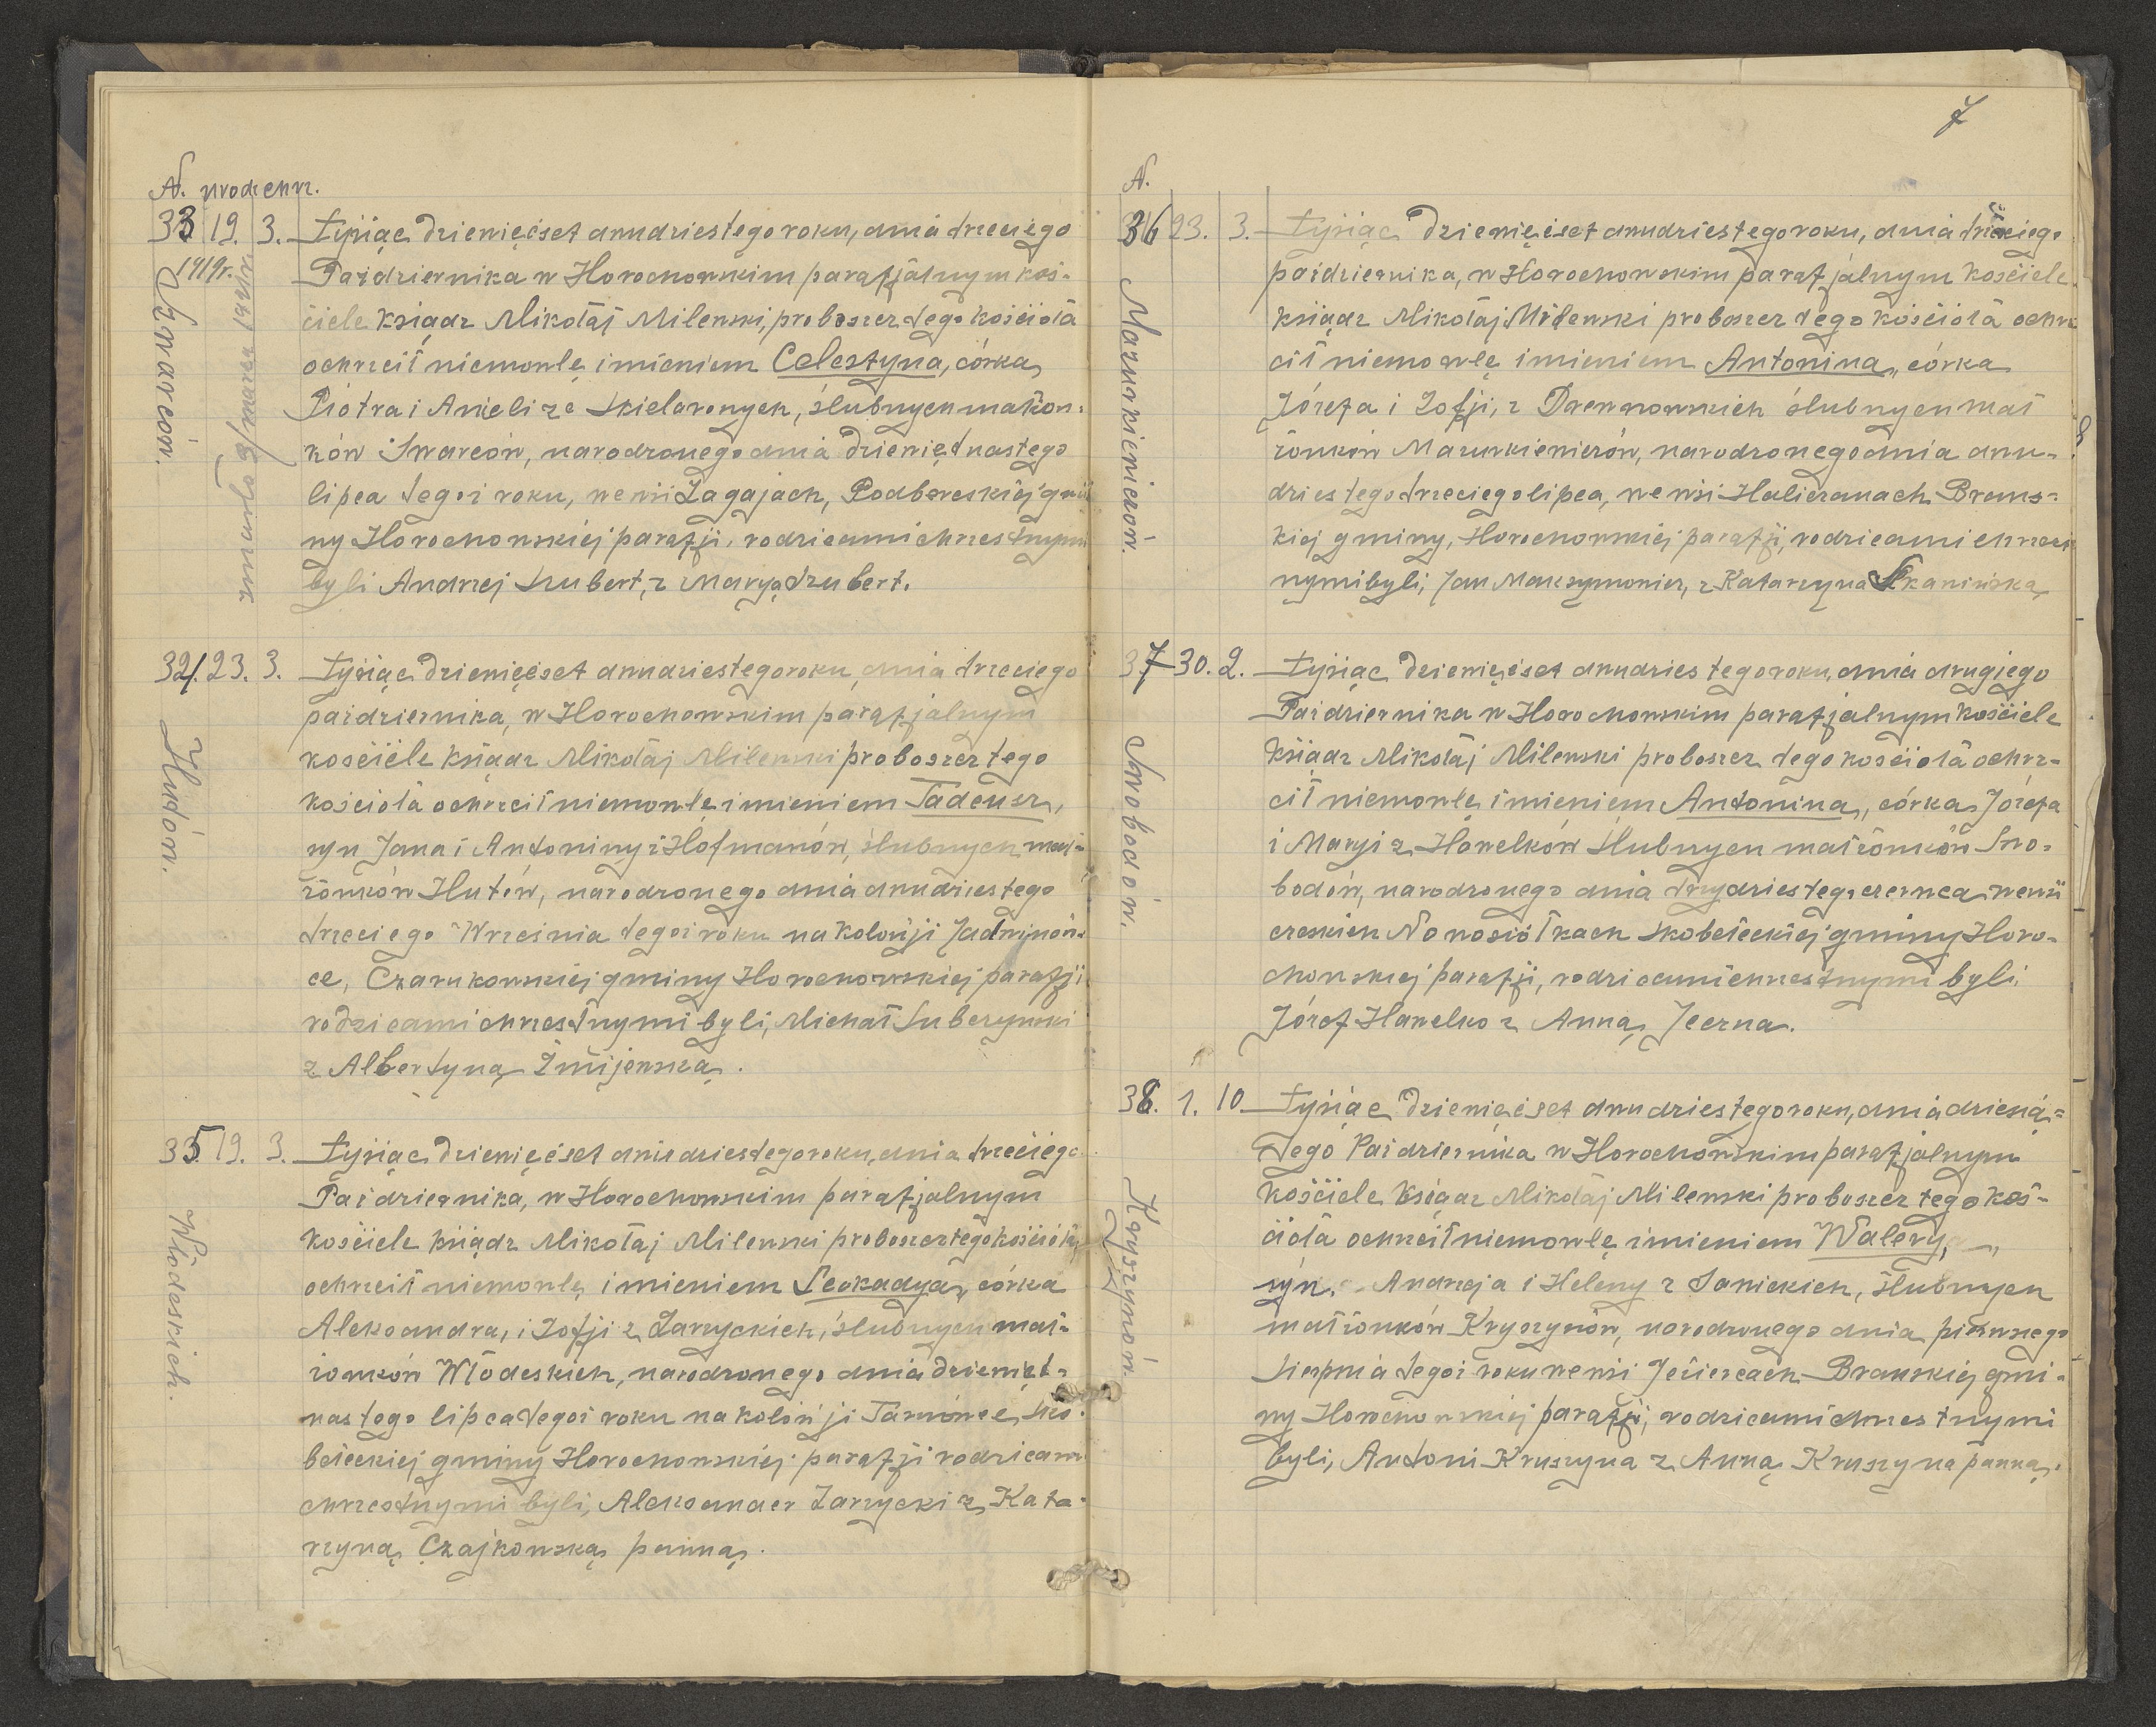 N. urodz chrz.
33 19. 3. tysiąc dziewięćset dwudziestego roku, dnia trzeciego
1919r.
Szwarców.
zmarła 3/marca
Paździerńika w Horochowskim parafjalnym koś-
ciele ksiądz Mikołaj Milewski, proboszcz tego kościoła
ochrzcił niemowlę imieniem Celestyna, córka
Piotra i Anieli ze Skielaronych, ślubnych małżon-
ków Swarców, narodzonego dnia dziewiętnastego
lipca tegoż roku, we wsi Zagajach, Podbereskiéj gmi
ny Horochowskiéj parafji, rodzicami chrzestnymi
byli Andrzej Szubert, z Maryą Szubert.
34. 23. 3. tysiąc dziewięćset dwudziestego roku, dnia trzeciego
Hudów.
października, w Horochowskim parafjalnym
kościele ksiądz Mikołaj Milewski proboszcz tego
kościoła ochrzcił niemowlę imieniem Tadeusz,
syn Jana i Antoniny z Hofmanów, ślubnych mał-
żonków Hutów, narodzonego dnia dwudziestego
trzeciego Września tegoż roku na kolonji Jadwinów-
ce, Czarukowskiéj gminy Horochowskiéj parafji
rodzicami chrzestnymi byli, Michał Luberzyński
z Albertyną Żmijewską.
35 19. 3. tysiąc dziewięćset dwudziestego roku, dnia trzeciego
Włodeskich.
Października, w Horochowskim parafjalnym
kościele ksiądz Mikołaj Milewski proboszcz tego kościoła,
ochrzcił niemowlę imieniem Leokadya, córka
Aleksandra, i Zofji z Zarzyckich, ślubnych mał-
żonków Włodeskich, narodzonego dnia dziewięt-
nastego lipca tegoż roku na kolonji Tarnówce, Sko-
bełeckiej gminy Horochowskiéj parafji rodzicam
chrzestnymi byli, Aleksander Zarzycki z Kata-
rzyną Czajkowską panną.
7
N.
36 23. 3. tysiąc dziewięćset dwudziestego roku, dnia trzeciego
Mazurkiewiczów.
października, w Horochowskim parafjalnym kościele
ksiądz Mikołaj Milewski proboszcz tego kościoła ochrz
cił niemowlę imieniem Antonina, córka
Józefa i Zofji, z Drewnowskich ślubnych mał
żonków Mazurkiewiczów, narodzonego dnia dwu-
dziestego trzeciego lipca, we wsi Haliczanach Brans-
kiej gminy, Horochowskiéj parafji, rodzicami chrzest
nymi byli, Jan Maksymowicz, z Katarzyną Skanińską
37 30. 2. tysiąc dziewięćset dwudziestego roku, dnia drugiego
Swobodów.
Października w Horochowskim parafjalnym kościele
ksiądz Mikołaj Milewski proboszcz tego kościoła ochrz-
cił niemowlę imieniem Antonina, córka Józefa
i Maryi z Hawelków ślubnych małżonków Swo-
bodów, narodzonego dnia trzydziestego czerwca we wsi
czeskich Nowosiółkach Skobełeckiéj gminy Horo-
chowskiej parafji, rodzicami chrzestnymi byli,
Józef Hawelko z Anną Jeerna.
38. 1. 10 tysiąc dziewięćset dwudziestego roku, dnia dziesią-
Kryszynów.
tego Października w Horochowskim parafjalnym
kościele ksiądz Mikołaj Milewski proboszcz tego koś-
cioła ochrzcił niemowlę imieniem Walery,
syn, Andrzeja i Heleny z Sawickich, ślubnych
małżonków Kryszynów, narodzonego dnia pierwszego
Sierpnia tegoż roku we wsi Jeziercach Brańskiéj gmi-
ny Horochowskiéj parafji, rodzicami chrzestnymi
byli, Antoni Kruszyna z Anną Kruszyna panną.